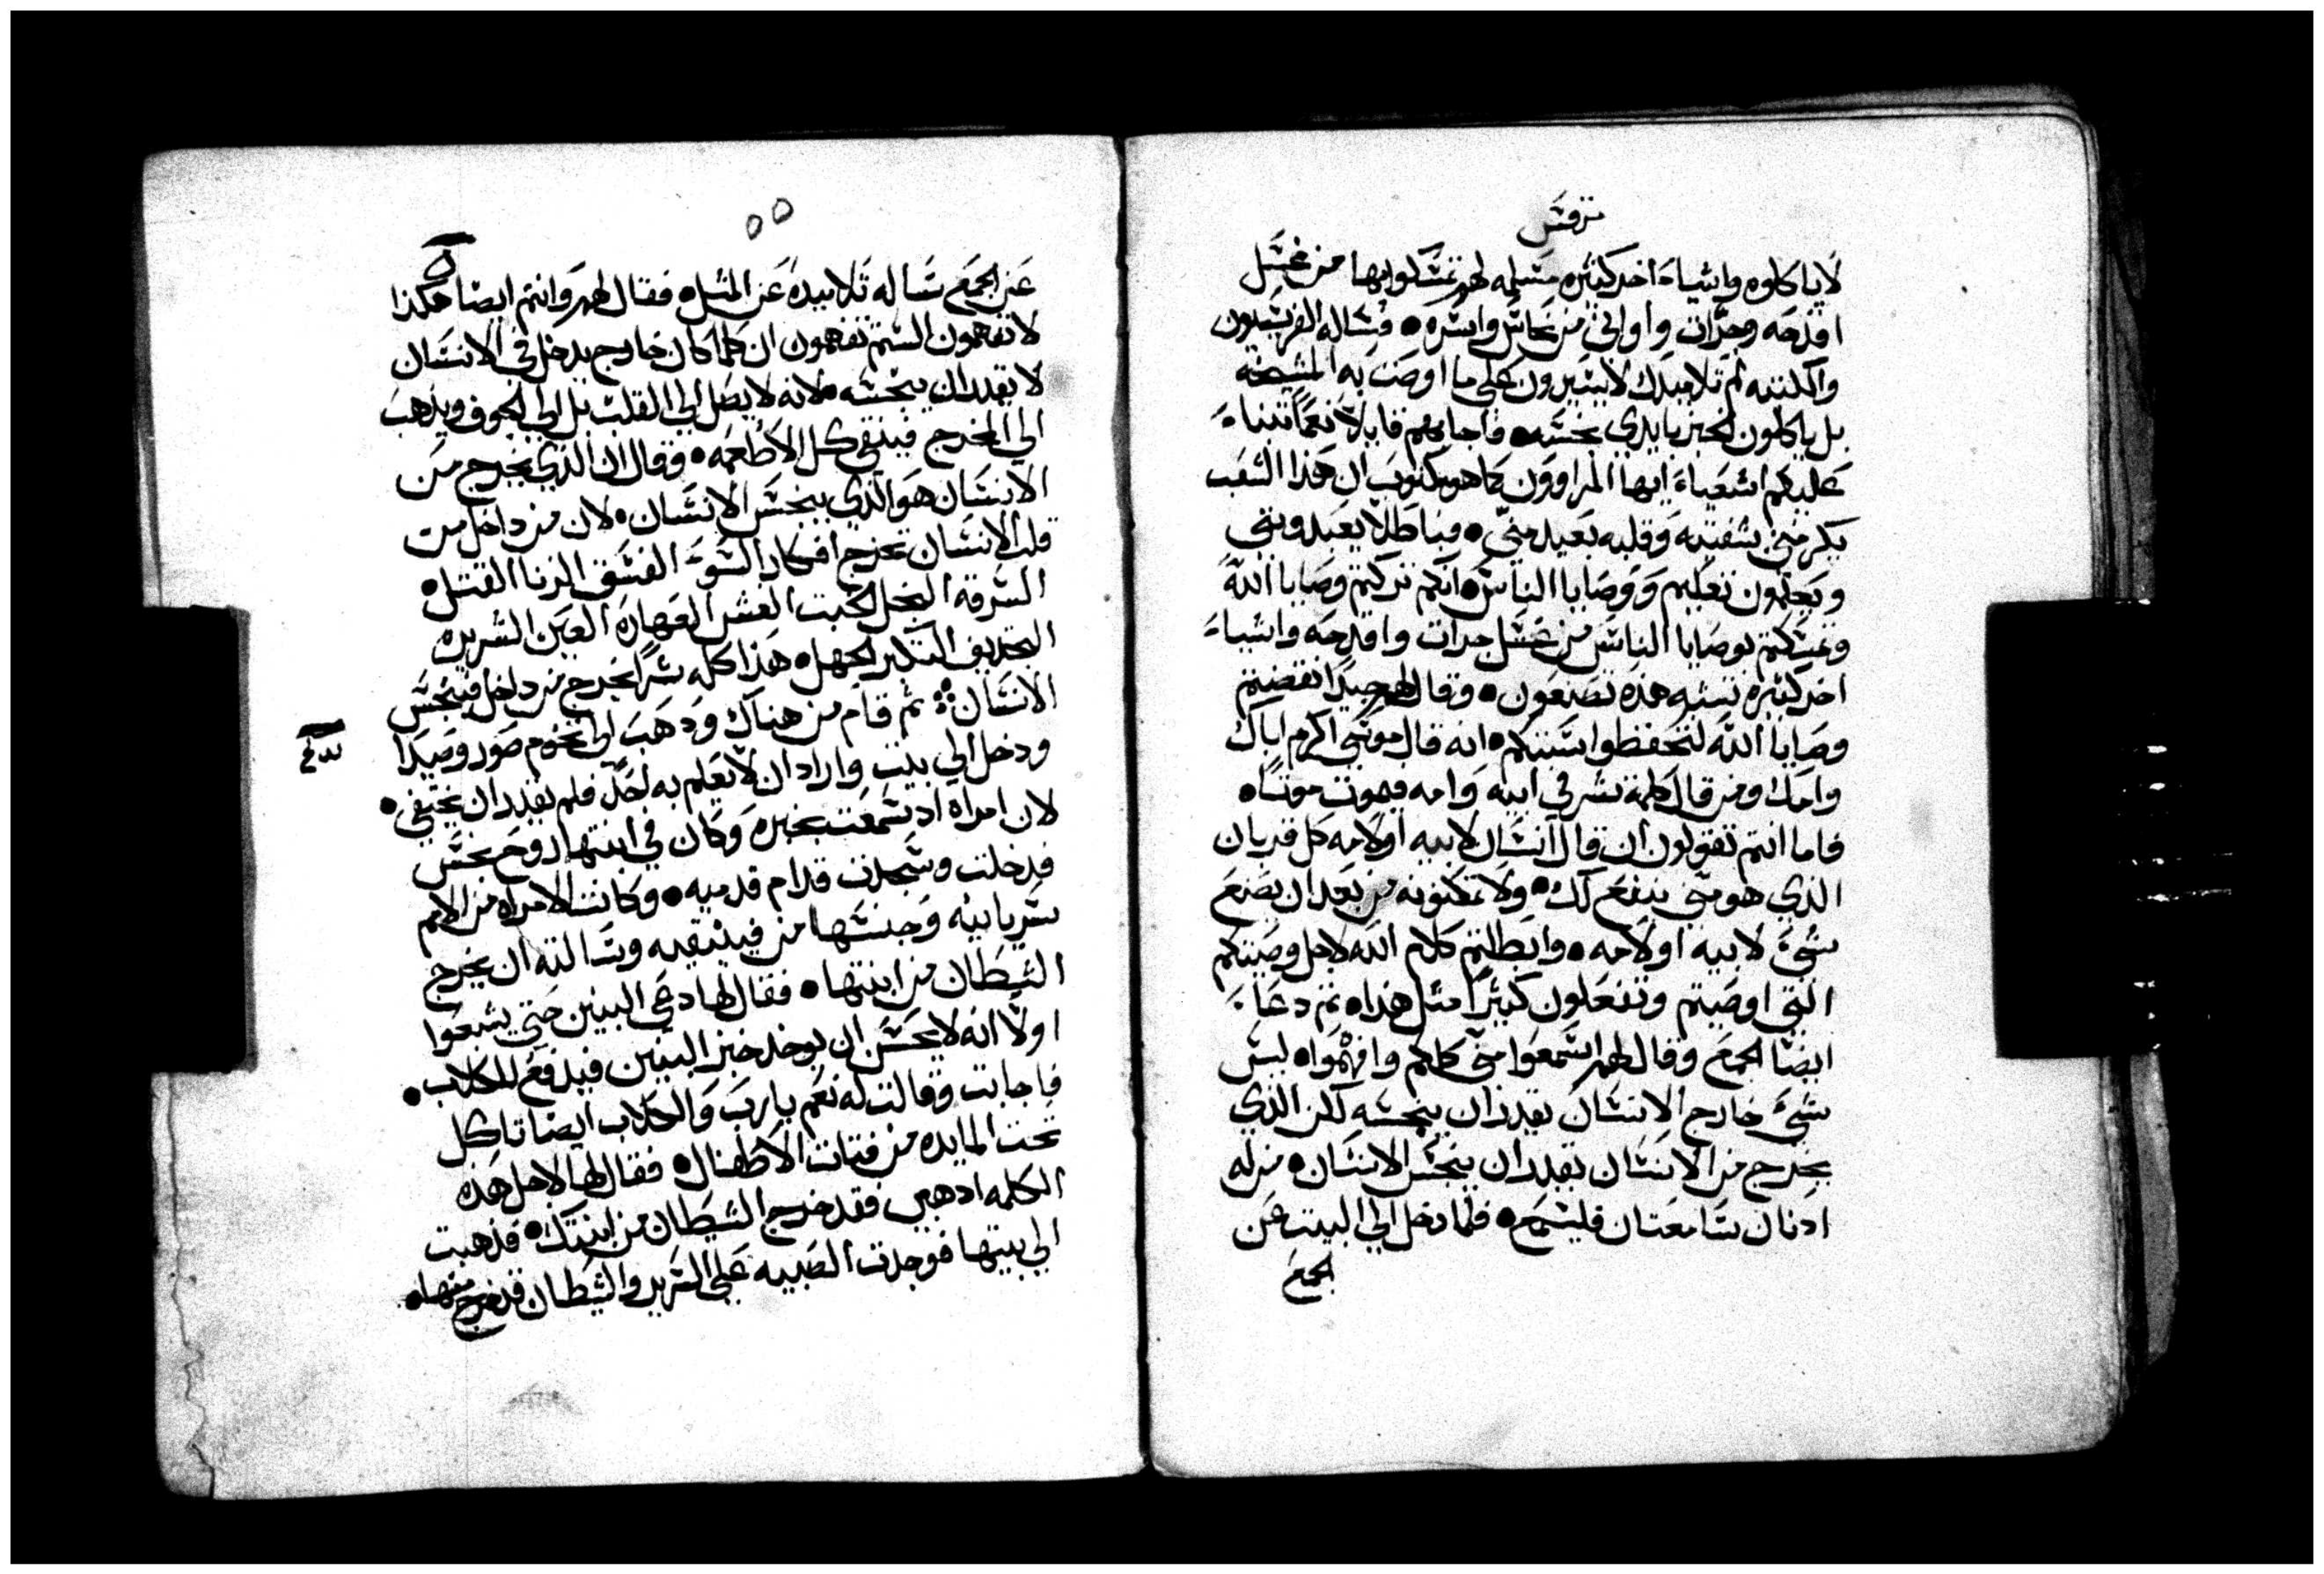 مرقس
لاياكلوه واشياء اخر كثيره مسلمه لهم تمسكوا بها من غسل
اقدحه وجرات واواني من نحاس واسره • فساله الفريسيون
والكتبه لم تلاميدك لا يسيرون على ما اوصت به المشيخه
بل ياكلون الخبز بايدي نجسه • فاجابهم قايلا نعما تنباء
عليكم اشعياء ايها المراوون كما هو مكتوب ان هذا الشعب
يكرمني بشفتيه وقلبه بعيد مني • فباطلا يعبدونني
ويعلمون تعليم ووصايا الناس • انكم تركتم وصايا الله
وتمسكتم بوصايا الناس من غسل جرات واقدحه واشياء
اخر كثيره تشبه هذه تصنعون • وقال لهم جيدا نقضتم
وصايا الله لتحفظوا سنتكم • انه قال موسى اكرم اباك
وامك ومن قال كلمة شر في ابيه وامه فيموت موتا •
فاما انتم تقولون ان قال انسان لابيه او لامه كل قربان
الذي هو مني ينفع لك • ولا تمكنونه من بعد ان يصنع
شيء لابيه او لامه • وابطلتم كلام الله لاجل وصيتكم
التي اوصيتم وتفعلون كثيرا مثل هذا • ثم دعاء
ايضا الجمع وقال لهم اسمعوا مني كلكم وافهموا • ليس
شيء خارج الانسان يقدر ان ينجسه لكن الذي
يخرج من الانسان يقدر ان ينجس الانسان • من له
ادنان سامعتان فليسمع • فلما دخل الى البيت عن
الجمع
٥٥
عن الجمع ساله تلاميده عن المثل • فقال لهم وانتم ايضا هكذا
لا تفهمون الستم تفهمون ان كلما كان خارج يدخل في الانسان
لا يقدر ان ينجسه • لانه لا يصل الى القلب بل الى الجوف ويذهب
الى المخرج فينقي كل الاطعمه • وقال ان الذي يخرج من
الانسان هو الذي ينجس الانسان • لان من داخل من
قلب الانسان تخرج افكار السوء الفسق الزنا القتل •
السرقه البخل الخبت الغش العهاره العين الشريره
التجديف التكبر الجهل • هذا كله شرا يخرج من داخل فينجس
الانسان ⁘ ثم قام من هناك ودهب الى تخوم صور وصيدا
ودخل الى بيت واراد ان لا يعلم به احد فلم يقدر ان يختفي •
لان امراه اد سمعت بخبره وكان في ابنتها روح نجس
فدخلت وسجدت قدام قدميه • وكانت الامراه من الامم
سريانيه وجنسها من فينيقيه وسالته ان يخرج
الشيطان من ابنتها • فقال لها دعي البنين حتى يشبعوا
اولا انه لا يحسن ان يوخد خبز البنين فيدفع للكلاب •
فاجابت وقالت له نعم يارب والكلاب ايضا تاكل
تحت المايده من فتات الاطفال • فقال لها لاجل هذه
الكلمه ادهبي فقد خرج الشيطان من ابنتك • فذهبت
الى بيتها فوجدت الصبيه على السرير والشيطان قد خرج منها •